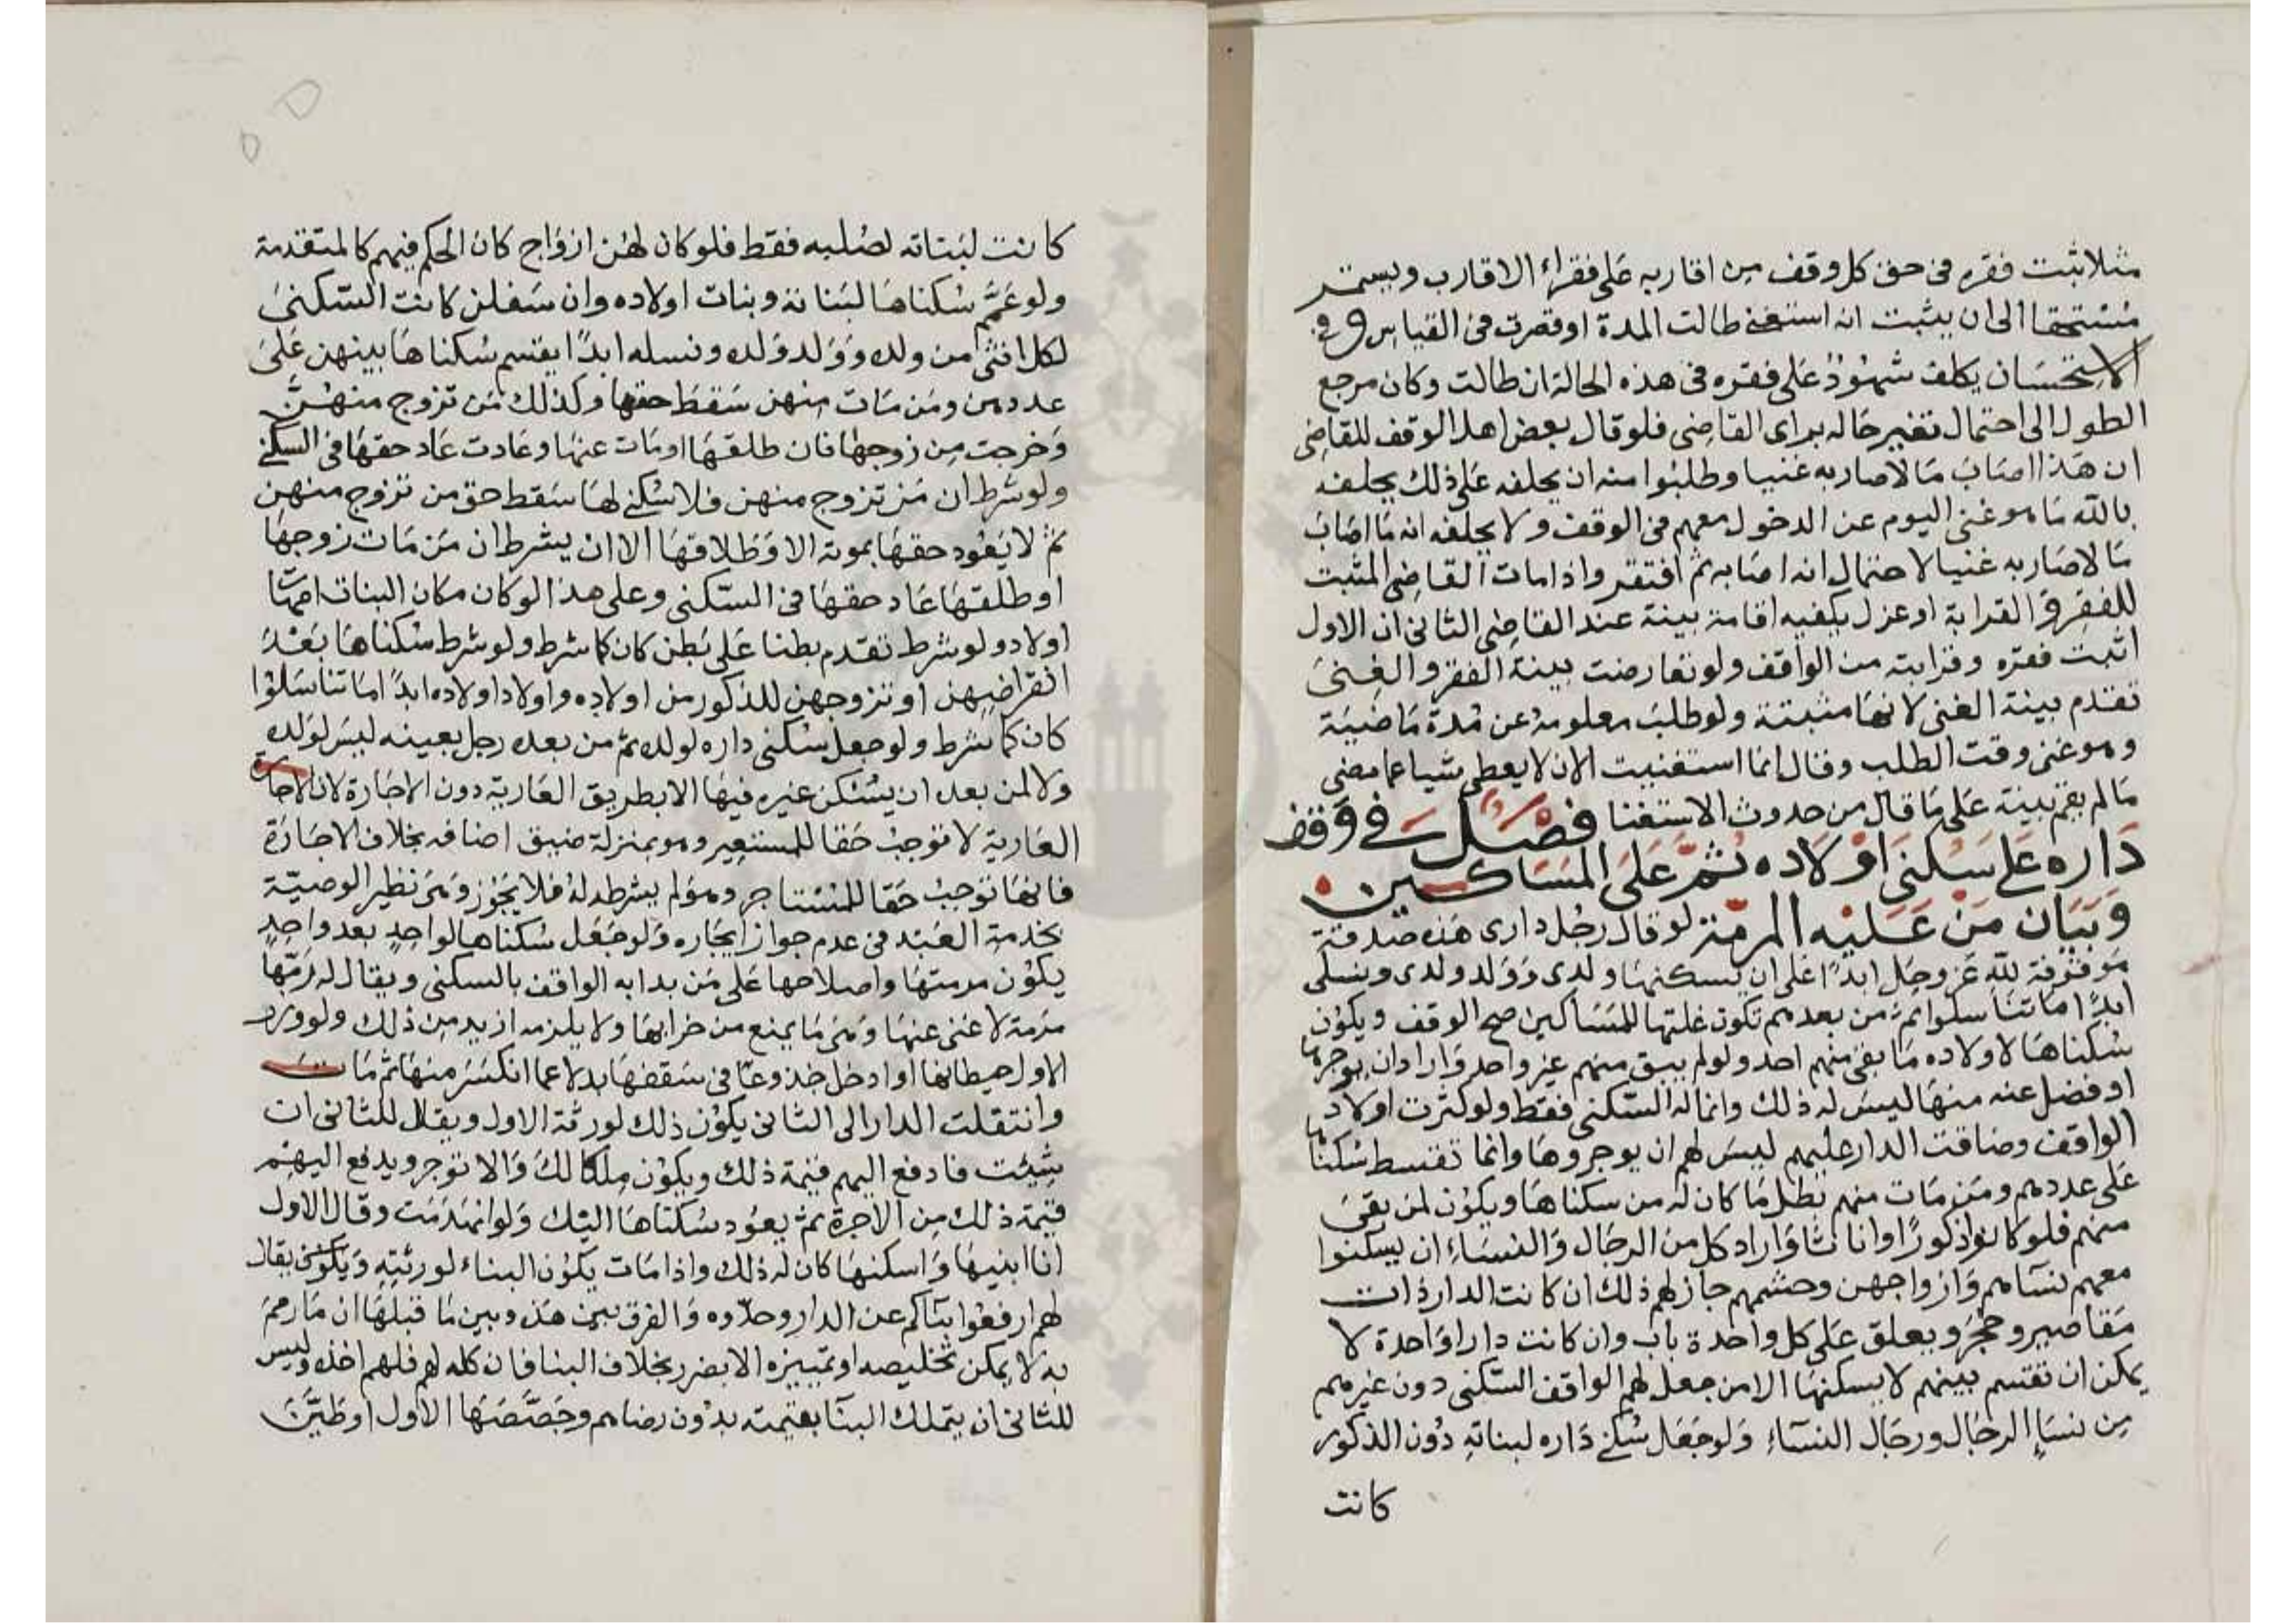 مثلا ثبت فقره فى حق كل وقف من اقاربه على فقراء الاقارب ويستمر
مستحقا الى ان يثبت انه استغنى طالت المدة او قصرت فى القياس وفى
الاستحسان يكلف شهود على فقره فى هذه الحالة ان طالت وكان مرجع
الطول الى احتمال تغير حاله براى القاضى فلو قال بعض اهل الوقف للقاضى
ان هذا اصاب مالا صار به غنيا وطلبوا منه ان يحلفه على ذلك يحلفه
بالله ما هو غنى اليوم عن الدخول معهم فى الوقف ولا يحلفه انه ما اصاب
مالا صار به غنيا لاحتمال انه اصابه ثم افتقر واذا مات القاضى المثبت
للفقر والقرابة او عزل يكفيه اقامة بينة عند القاضى الثانى ان الاول
اثبت فقره وقرابته من الواقف ولو تعارضت بينة الفقر والغنى
تقدم بينة الغنى لانها مثبتة ولو طلب معلومه عن مدة ماضية
وهو غنى وقت الطلب وقال انما استغنيت الان لا يعطى شيا عما مضى
ما لم يقم بينة على ما قال من حدوث الاستغنا فصل فى وقف
داره على سكنى اولاده ثم على المساكين
وبيان من عليه المرمة لو قال رجل دارى هذه صدقة
موقوفة لله عز وجل ابدا على ان يسكنها ولدى وولد ولدى ونسلى
ابدا ما تناسلوا ثم من بعدهم تكون غلتها للمساكين صح الوقف ويكون
سكناها لاولاده ما بقى منهم احد ولو لم يبق منهم غير واحد واراد ان يوجرها
او فضل عنه منها ليس له ذلك وانما له السكنى فقط ولو كثرت اولاد
الواقف وضاقت الدار عليهم ليس لهم ان يوجروها وانما تقسط سكناها
على عددهم ومن مات منهم بطل ما كان له من سكناها ويكون لمن بقى
منهم فلو كانوا ذكورا واناثا واراد كل من الرجال والنساء ان يسكنوا
معهم نساهم وازواجهن وحشمهم جاز لهم ذلك ان كانت الدار ذات
مقاصير وحجر ويعلق على كل واحدة باب وان كانت دارا واحدة لا
يمكن ان تقتسم بينهم لا يسكنها الا من جعل لهم الواقف السكنى دون غيرهم
من نساء الرجال ورجال النساء ولو جعل سكنى داره لبناته دون الذكور
كانت
كانت لبناته لصلبه فقط فلو كان لهن ازواج كان الحكم فيهم كالمتقدمة
ولو عمم سكناها لبناته وبنات اولاده وان سفلن كانت السكنى
لكل انثى من ولده وولد ولده ونسله ابدا يقتسم سكناها بينهن على
عددهن ومن مات منهن سقط حقها وكذلك من تزوج منهن
وخرجت من زوجها فان طلقها او مات عنها وعادت عاد حقها فى السكنى
ولو شرط ان من تزوج منهن فلا سكنى لها سقط حق من تزوج منهن
ثم لا يعود حقها بموته الا وطلاقها الا ان يشرط ان من مات زوجها
او طلقها عاد حقها فى السكنى وعلى هذا لو كان مكان البنات امهات
اولاد ولو شرط تقدم بطنا على بطن كان كما شرط ولو شرط سكناها بعد
انقراضهن او تزوجهن للذكور من اولاده واولاد اولاده ابدا اما تناسلوا
كان كما شرط ولو جعل سكنى داره لولده ثم من بعده رجل بعينه ليس لولده
ولا لمن بعده ان يسكن غيره فيها الا بطريق العارية دون الاجارة لان الاجارة
العارية لا توجب حقا للمستعير وهو بمنزلة ضيف اضافه بخلاف الاجارة
فانها توجب حقا للمستاجر وهو لم يشرطه له فلا يجوز وهى نظير الوصية
بخدمة العبد فى عدم جواز ايجاره ولو جعل سكناها لواحد بعد واحد
يكون مرمتها واصلاحها على من بدا به الواقف بالسكنى ويقال له رمها
مرمة لا غنى عنها وهى ما يمنع من خرابها ولا يلزمه ازيد من ذلك ولو وزر
الاول حيطانها او ادخل جذوعا فى سقفها بدلا عما انكسر منها ثم مات
وانتقلت الدار الى الثانى يكون ذلك لورثة الاول ويقال للثانى ان
شئت فادفع اليهم قيمة ذلك ويكون ملكا لك والا توجر ويدفع اليهم
قيمة ذلك من الاجرة ثم يعود سكناها اليك ولو انهدمت وقال الاول
انا ابنيها واسكنها كان له ذلك واذا مات يكون البناء لورثته ويقال
لهم ارفعوا بناكم عن الدار وخلوه والفرق بين هذه وبين ما قبلها ان ما رمم
به لا يمكن تخليصه او تمييزه الا بضرر بخلاف البنا فان كله لهم فلهم اخذه وليس
للثانى ان يتملك البنا بقيمته بدون رضاهم وجصصها الاول او طين